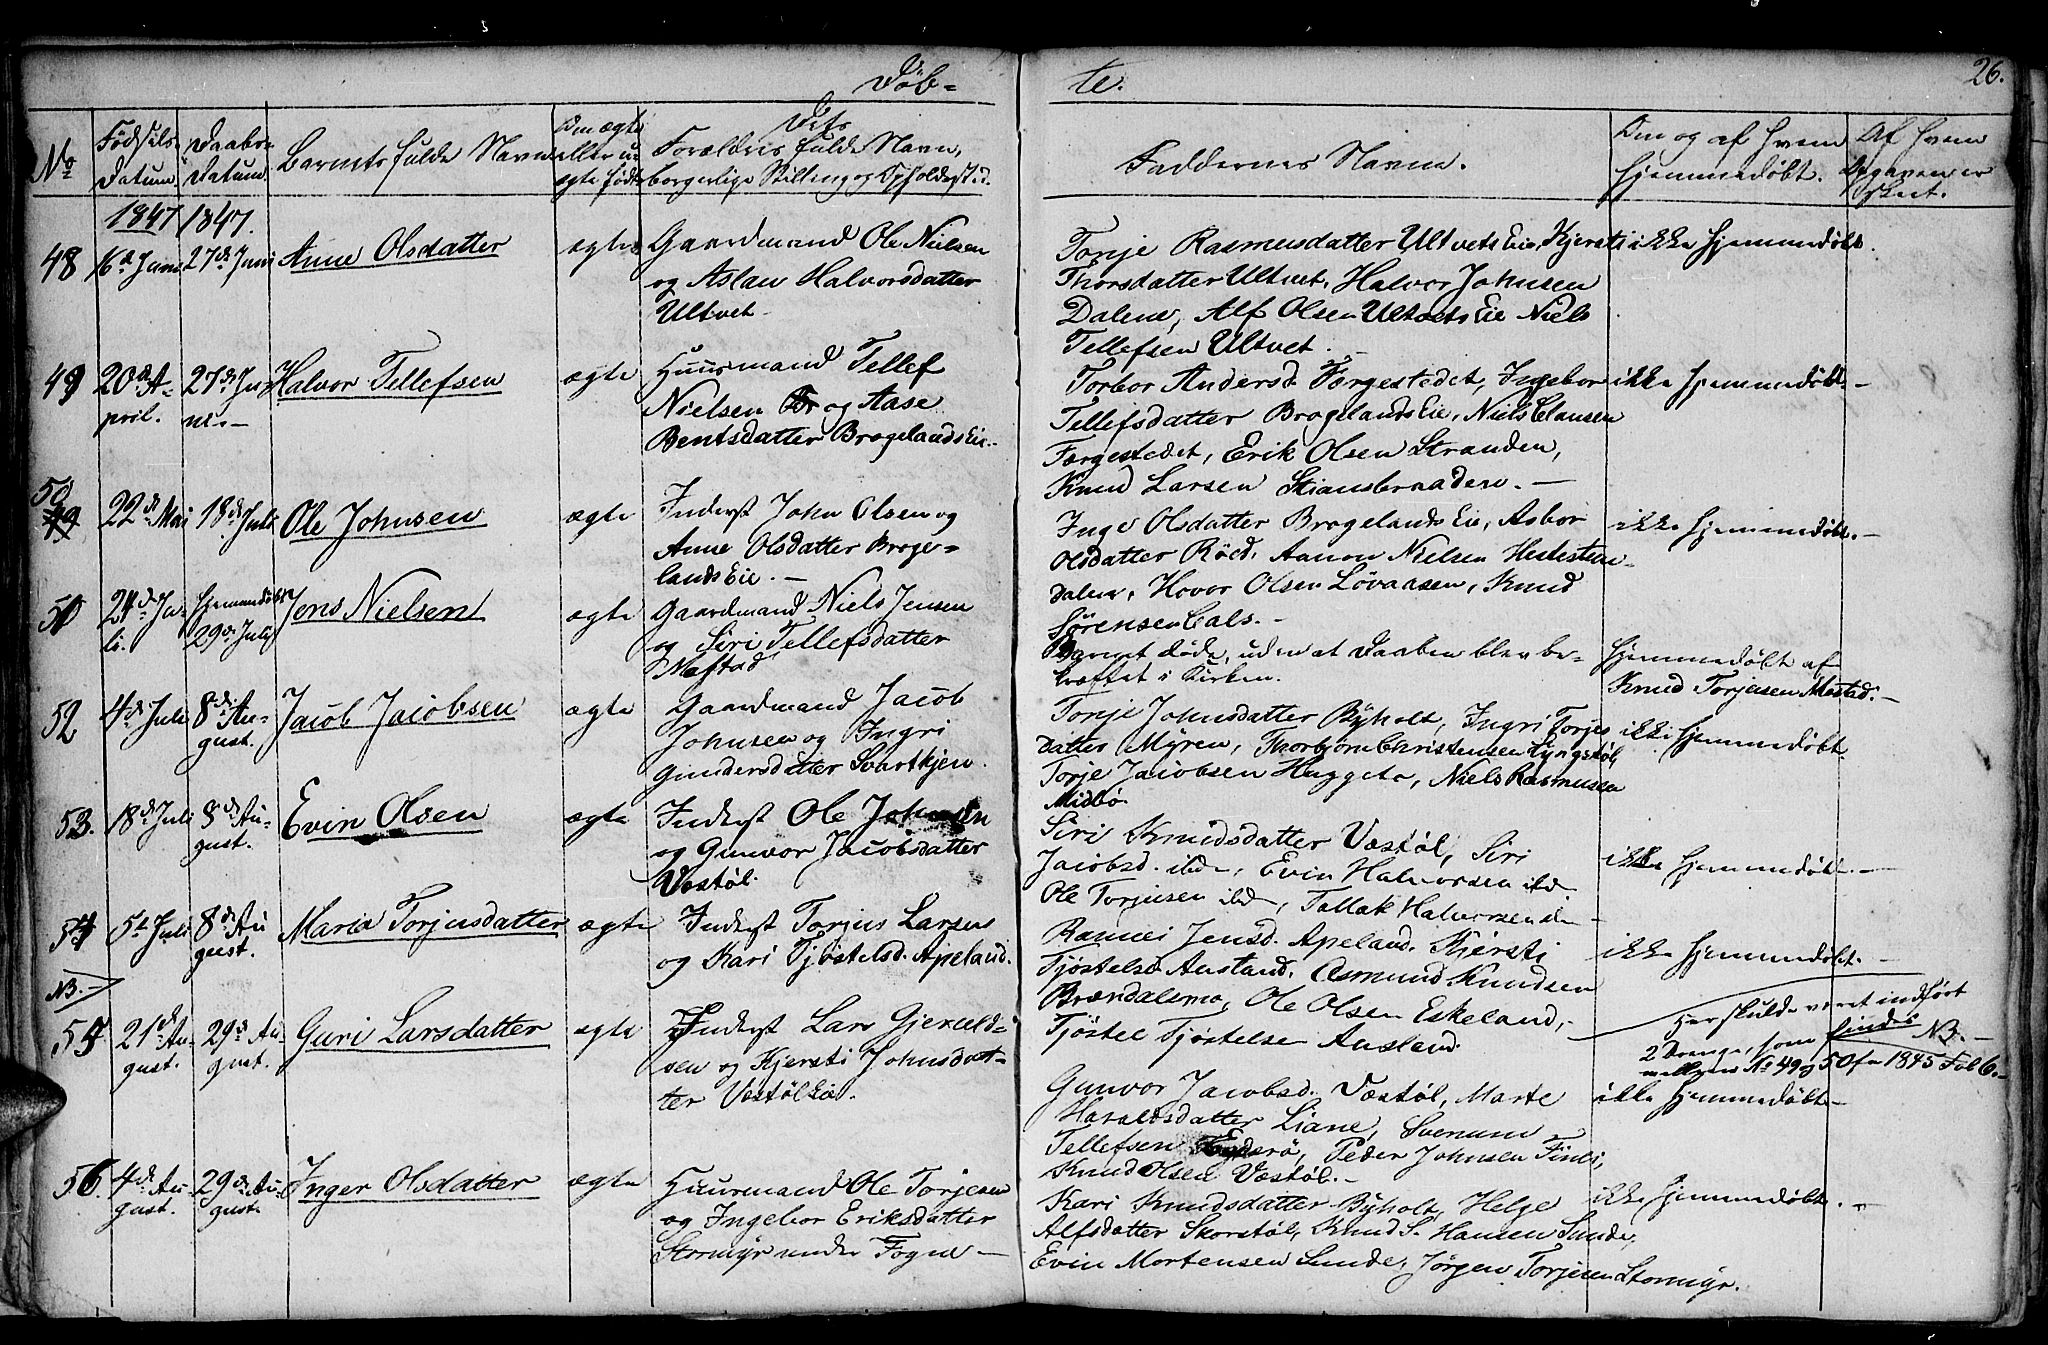 Döb-
te.
26.
No
Födsels-
Datum.
Daabs-
Datum.
Barnets fulde Navn
Om ægte
eller u-
ægte født
Dets
Forældres fulde Navn,
borgerlige Stilling og Opholdssted.
Faddernes Navne.
Om og af hvem
hjemmedøbt.
Af hvem
Opgaven er
skeet.
1847 1847.
48
16de Juni
27de Juni
Anne Olsdatter
ægte
Gaardmand Ole Nielsen
og Aslau Halvorsdatter
Ultvet
Tonje Rasmusdatter Ultvets Eie, Kjersti
Thorsdatter Ultvet, Halvor Johnsen
Dalene, Alf Olsen Ultvets Eie Niels
Tellefsen Ultvet.
ikke hjemmedøbt.
49
20de A-
pril.
27de Ju
ni. -
Halvor Tellefsen
ægte
Huusmand Tellef
Nielsen og Aase
Bentsdatter Bragelands Eie.
Torbor Andersd. Færgestedet, Ingebor
Tellefsdatter Bragelands Eie, Niels Clausen
Færgestedet, Erik Olsen Stranden,
Knud Larsen Skiansbraaden. -
ikke hjemmedøbt -
50
49
22de Mai
18de Juli
Ole Johnsen
ægte
Inderst John Olsen og
Anne Olsdatter Brage-
lands Eie. -
Inge Olsdatter Bragelands Eie, Asbor
Olsdatter Röed, Aanon Nielsen Hestesten-
dalen, Hovor Olsen Lövaasen, Knud
Sörensen Cals. -
ikke hjemmedøbt. -
51
24de Ju-
li.
Hjemmedøbt
29de July
Jens Nielsen
ægte
Gaardmand Niels Jensen
og Siri Tellefsdatter
Mestad
Barnet døde, uden at Daaben blev be-
kræftet i Kirken.
hjemmedøbt af
Knud Torjesen Mestad. -
52
4de Juli
8de Au-
gust.
Jacob Jacobsen
ægte
Gaardmand Jacob
Johnsen og Ingri
Gundersdatter Svartkjen.
Tonje Johnsdatter Byholt, Ingri Torjes
datter Myren, Thorbjørn Christensen Lyngstøl,
Torje Jacobsen Heggeto, Niels Rasmusen
Midbö.
ikke hjemmedøbt
53.
18de Juli
8de Au-
gust.
Evin Olsen
ægte
Inderst Ole Johnsen
og Gunvor Jacobsdatter
Væstøl.
Siri Knudsdatter Væstøl, Siri
Jacobsd. ibd, Evin Halvorsen ibd
Ole Torjusen ibd, Tallak Halvorsen
ikke hjemmedøbt. -
54
5te Juli
8de Au
gust.
Maria Torjusdatter
ægte
Inderst Torjus Larsen
og Kari Tjøstelsd. Apeland.
Ramei Jensd. Apeland. Kjersti
Tjøstelsd Ausland, Asmund Knudsen
Brændalsmo, Ole Olsen Eskeland,
Tjöstel Tjöstelsen Ausland.
ikke hjemmedøbt. -
NB. -
Her skulde været indført
2 Drenge, som findes NB. -
mellem No 49 og 50 for 1845 Fol 6. -
55
21de Au-
gust.
29de Au-
gust.
Guri Larsdatter
ægte
Inderst Lars Gjeruld-
sen og Kjersti Johnsdat-
ter Væstøl Eie.
Gunvor Jacobsd. Væstøl, Marte
Haraldsdatter Liane, Svenum
Tellefsen Peder Johnsen
Knud Olsen Væstøl. -
ikke hjemmedøbt -
56
4de Au
gust.
29de Au-
gust.
Inger Olsdatter
ægte
Huusmand Ole Torjesen
og Ingebor Eriksdatter
Stormyr under Fogne -
Kari Knudsdatter Byholt, Helge
Alfsdatter Skorstøl, Knud S. Hansen Sunde,
Evin Mortensen Sunde, Jörgen Torjesen Stormyr.
ikke hjemmedøbt. -